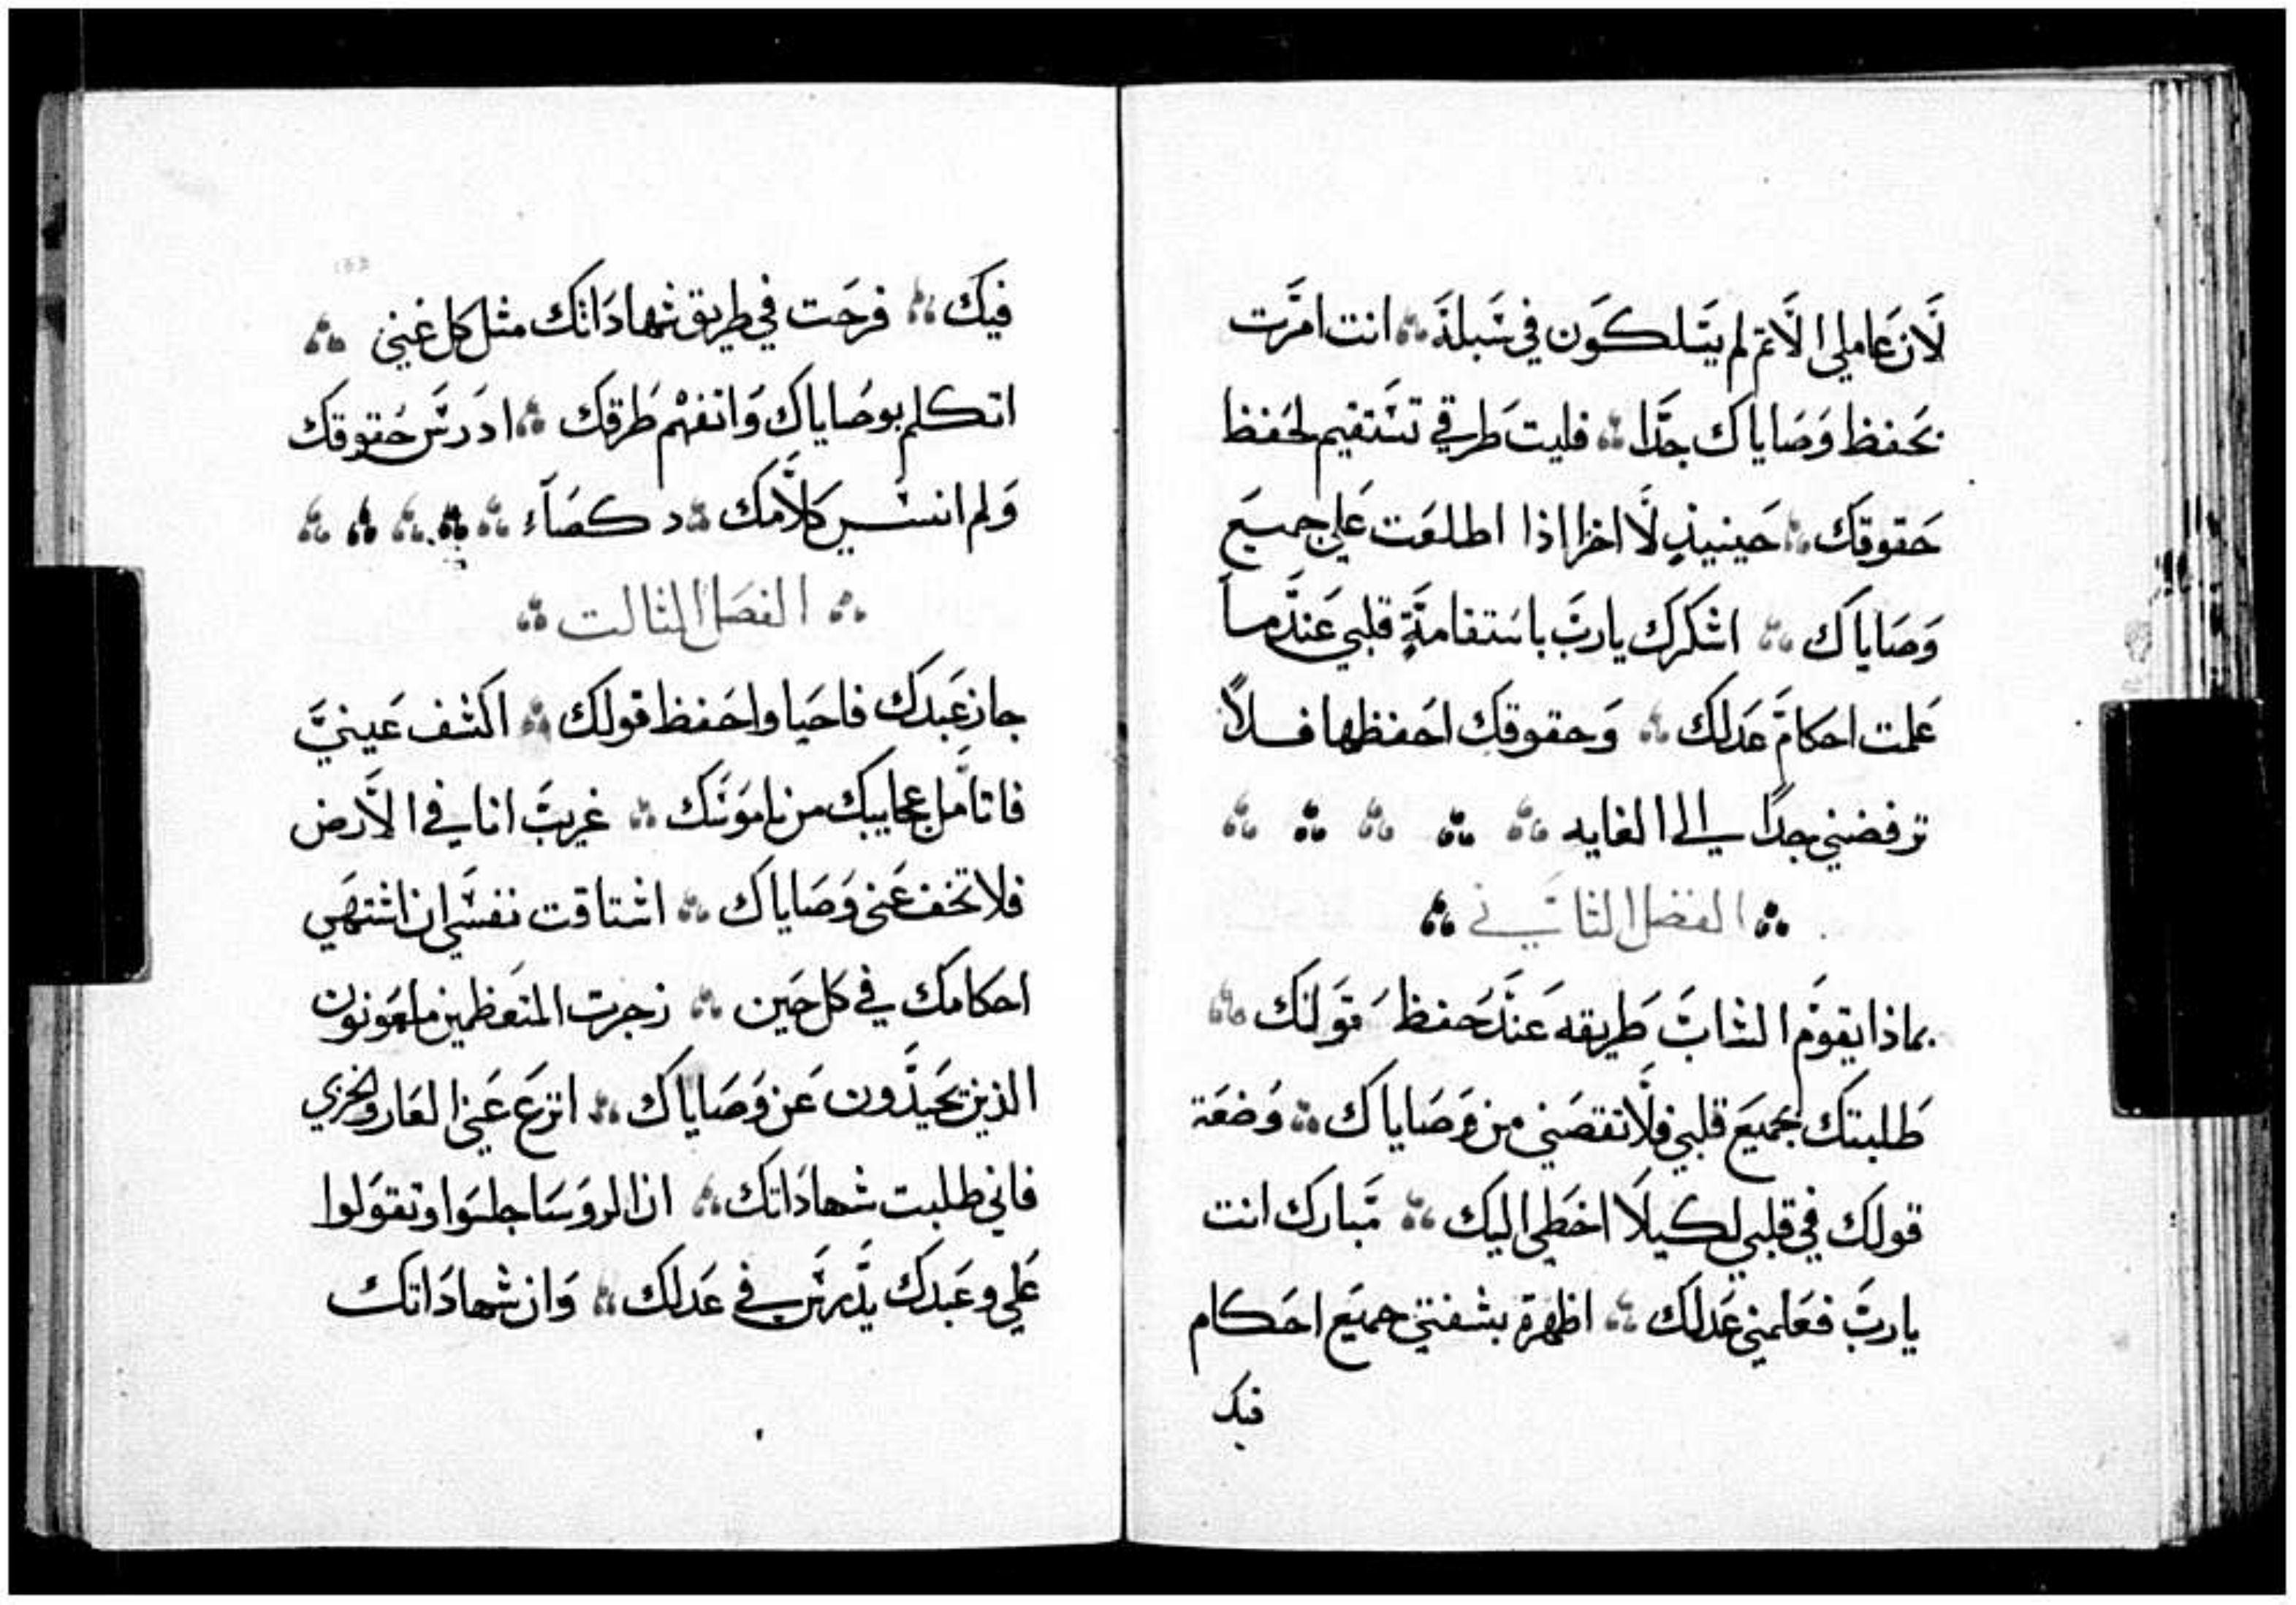 لان عاملي الاثم لم يسلكون في سبله انت امرت
بحفظ وصاياك جدا فليت طرقي تستقيم لحفظ
حقوقك حينيذٍ لا اخزا اذا اطلعت علي جميع
وصاياك اشكرك يارب باستقامةٍ قلبي عندما
علمت احكام عدلك وحقوقك احفظها فلاً
ترفضني جداً الي الغايه
الفصل الثاني
بماذا يقوم الشاب طريقه عند حفظ قولك
طلبتك بجميع قلبي فلا تقصني من وصاياك وضعة
قولك في قلبي لكيلا اخطي اليك مبارك انت
يارب فعلمني عدلك اظهرة بشفتي جميع احكام
فيك
فيك فرحت في طريق شهاداتك مثل كل غني
اتكلم بوصاياك واتفهم طرقك ادرس حقوقك
ولم انسي كلامك د كصاء
الفصل الثالت
جاز عبدك فاحيا واحفظ قولك اكشف عيني
فاتامل عجايبك من ناموسك غريب انا في الارض
فلا تخف عني وصاياك اشتاقت نفسي ان اشتهي
احكامك في كل حين زجرت المتعظمين ملعونون
الذين يحيدون عن وصاياك انزع عني العار والخزي
فاني طلبت شهاداتك ان الروسا جلسوا وتقولوا
علي وعبدك يدرس في عدلك وان شهاداتك